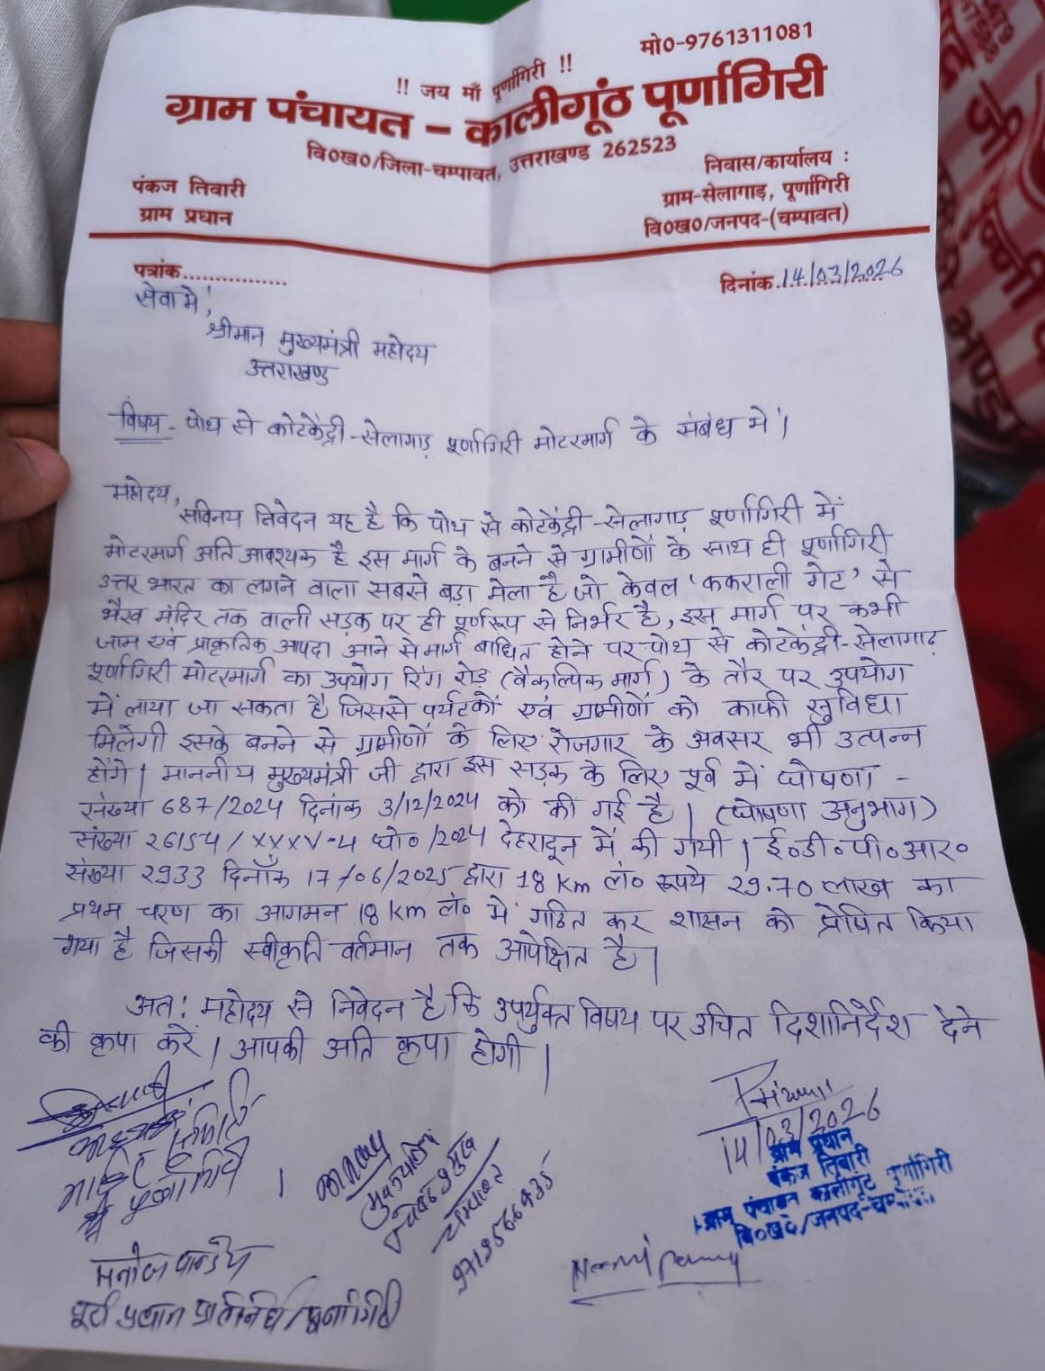 मो0-9761311081
!! जय माँ पूर्णागिरी !!
ग्राम पंचायत - कालीगूंठ पूर्णागिरी
वि0ख0/जिला-चम्पावत, उत्तराखण्ड 262523
पंकज तिवारी
ग्राम प्रधान
निवास/कार्यालय :
ग्राम-सेलागाड़, पूर्णागिरी
वि0ख0/जनपद-(चम्पावत)
पत्रांक...............
दिनांक.14/03/2026
सेवा में,
श्रीमान मुख्यमंत्री महोदय
उत्तराखण्ड
विषय - पोथ से कोटकेंद्री-सेलागाड़ पूर्णागिरी मोटरमार्ग के संबंध में।
महोदय,
सविनय निवेदन यह है कि पोथ से कोटकेंद्री-सेलागाड़ पूर्णागिरी में
मोटरमार्ग अति आवश्यक है इस मार्ग के बनने से ग्रामीणों के साथ ही पूर्णागिरी
उत्तर भारत का लगने वाला सबसे बड़ा मेला है जो केवल 'ककराली गेट' से
भैरव मंदिर तक वाली सड़क पर ही पूर्णरूप से निर्भर है, इस मार्ग पर कभी
जाम एवं प्राकृतिक आपदा आने से मार्ग बाधित होने पर पोथ से कोटकेंद्री-सेलागाड़
पूर्णागिरी मोटरमार्ग का उपयोग रिंग रोड़ (वैकल्पिक मार्ग) के तौर पर उपयोग
में लाया जा सकता है जिससे पर्यटकों एवं ग्रामीणों को काफी सुविधा
मिलेगी इसके बनने से ग्रामीणों के लिए रोजगार के अवसर भी उत्पन्न
होंगे। माननीय मुख्यमंत्री जी द्वारा इस सड़क के लिए पूर्व में घोषणा -
संख्या 687/2024 दिनांक 3/12/2024 को की गई है। (घोषणा अनुभाग)
संख्या 26154/XXXV-4 घो०/2024 देहरादून में की गयी। ई०डी०पी०आर०
संख्या 2933 दिनाँक 17/06/2025 द्वारा 18 Km लं० रूपये 29.70 लाख का
प्रथम चरण का आगमन 18 Km लं० में गठित कर शासन को प्रेषित किया
गया है जिसकी स्वीकृति वर्तमान तक आपेक्षित है।
अत: महोदय से निवेदन है कि उपर्युक्त विषय पर उचित दिशानिर्देश देने
की कृपा करें। आपकी अति कृपा होगी।
14/03/2026
ग्राम प्रधान
पंकज तिवारी
ग्राम पंचायत कालीगूंठ पूर्णागिरी
वि0ख0/जनपद-चम्पावत
मनोज पाण्डेय
पूर्व प्रधान प्रतिनिधि पूर्णागिरी